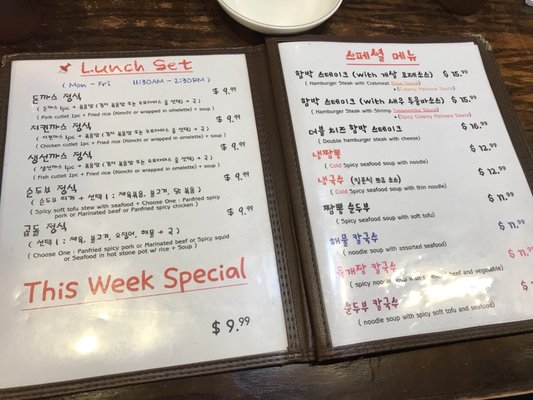 Lunch Set
(Mon - Fri 11:30AM - 2:30PM)
돈까스 정식 $ 9.99
(Pork cutlet 1pc + Fried rice (Kimchi or wrapped in omelette) + soup)
치킨까스 정식 $ 9.99
(Chicken cutlet 1pc + Fried rice (Kimchi or wrapped in omelette) + soup)
생선까스 정식 $ 9.99
(Fish cutlet 1pc + Fried rice (Kimchi or wrapped in omelette) + soup)
순두부 정식 $ 9.99
(순두부 찌개 + 선택 1 : 제육볶음, 불고기, 닭 볶음)
(Spicy soft tofu stew with seafood + Choose One : Panfried spicy
pork or Marinated beef or Panfried spicy chicken)
곱돌 정식 $ 9.99
(선택 1 : 제육, 불고기, 오징어, 해물 + 국)
(Choose One : Panfried spicy pork or Marinated beef or Spicy squid
or Seafood in hot stone pot w/ rice + Soup)
This Week Special
$ 9.99
스페셜 메뉴
함박 스테이크 (with 게살 로제소스) $ 15.99
(Hamburger Steak with Crabmeat
*Creamy Marinara Sauce)
함박 스테이크 (with 새우 토마소스) $ 15.99
(Hamburger Steak with Shrimp
*Creamy Marinara Sauce)
더블 치즈 함박 스테이크 $ 16.99
(Double hamburger steak with cheese)
냉짬뽕 $ 12.99
(Cold Spicy seafood soup with noodle)
냉국수 $ 12.99
(Cold Spicy seafood soup with thin noodle)
짬뽕 순두부 $ 11.99
(Spicy seafood soup with soft tofu)
해물 칼국수 $ 11.99
(noodle soup with assorted seafood)
육개장 칼국수 $ 11.99
(spicy noodle soup with beef and vegetable)
순두부 칼국수 $ 11.99
(noodle soup with spicy soft tofu and seafood)